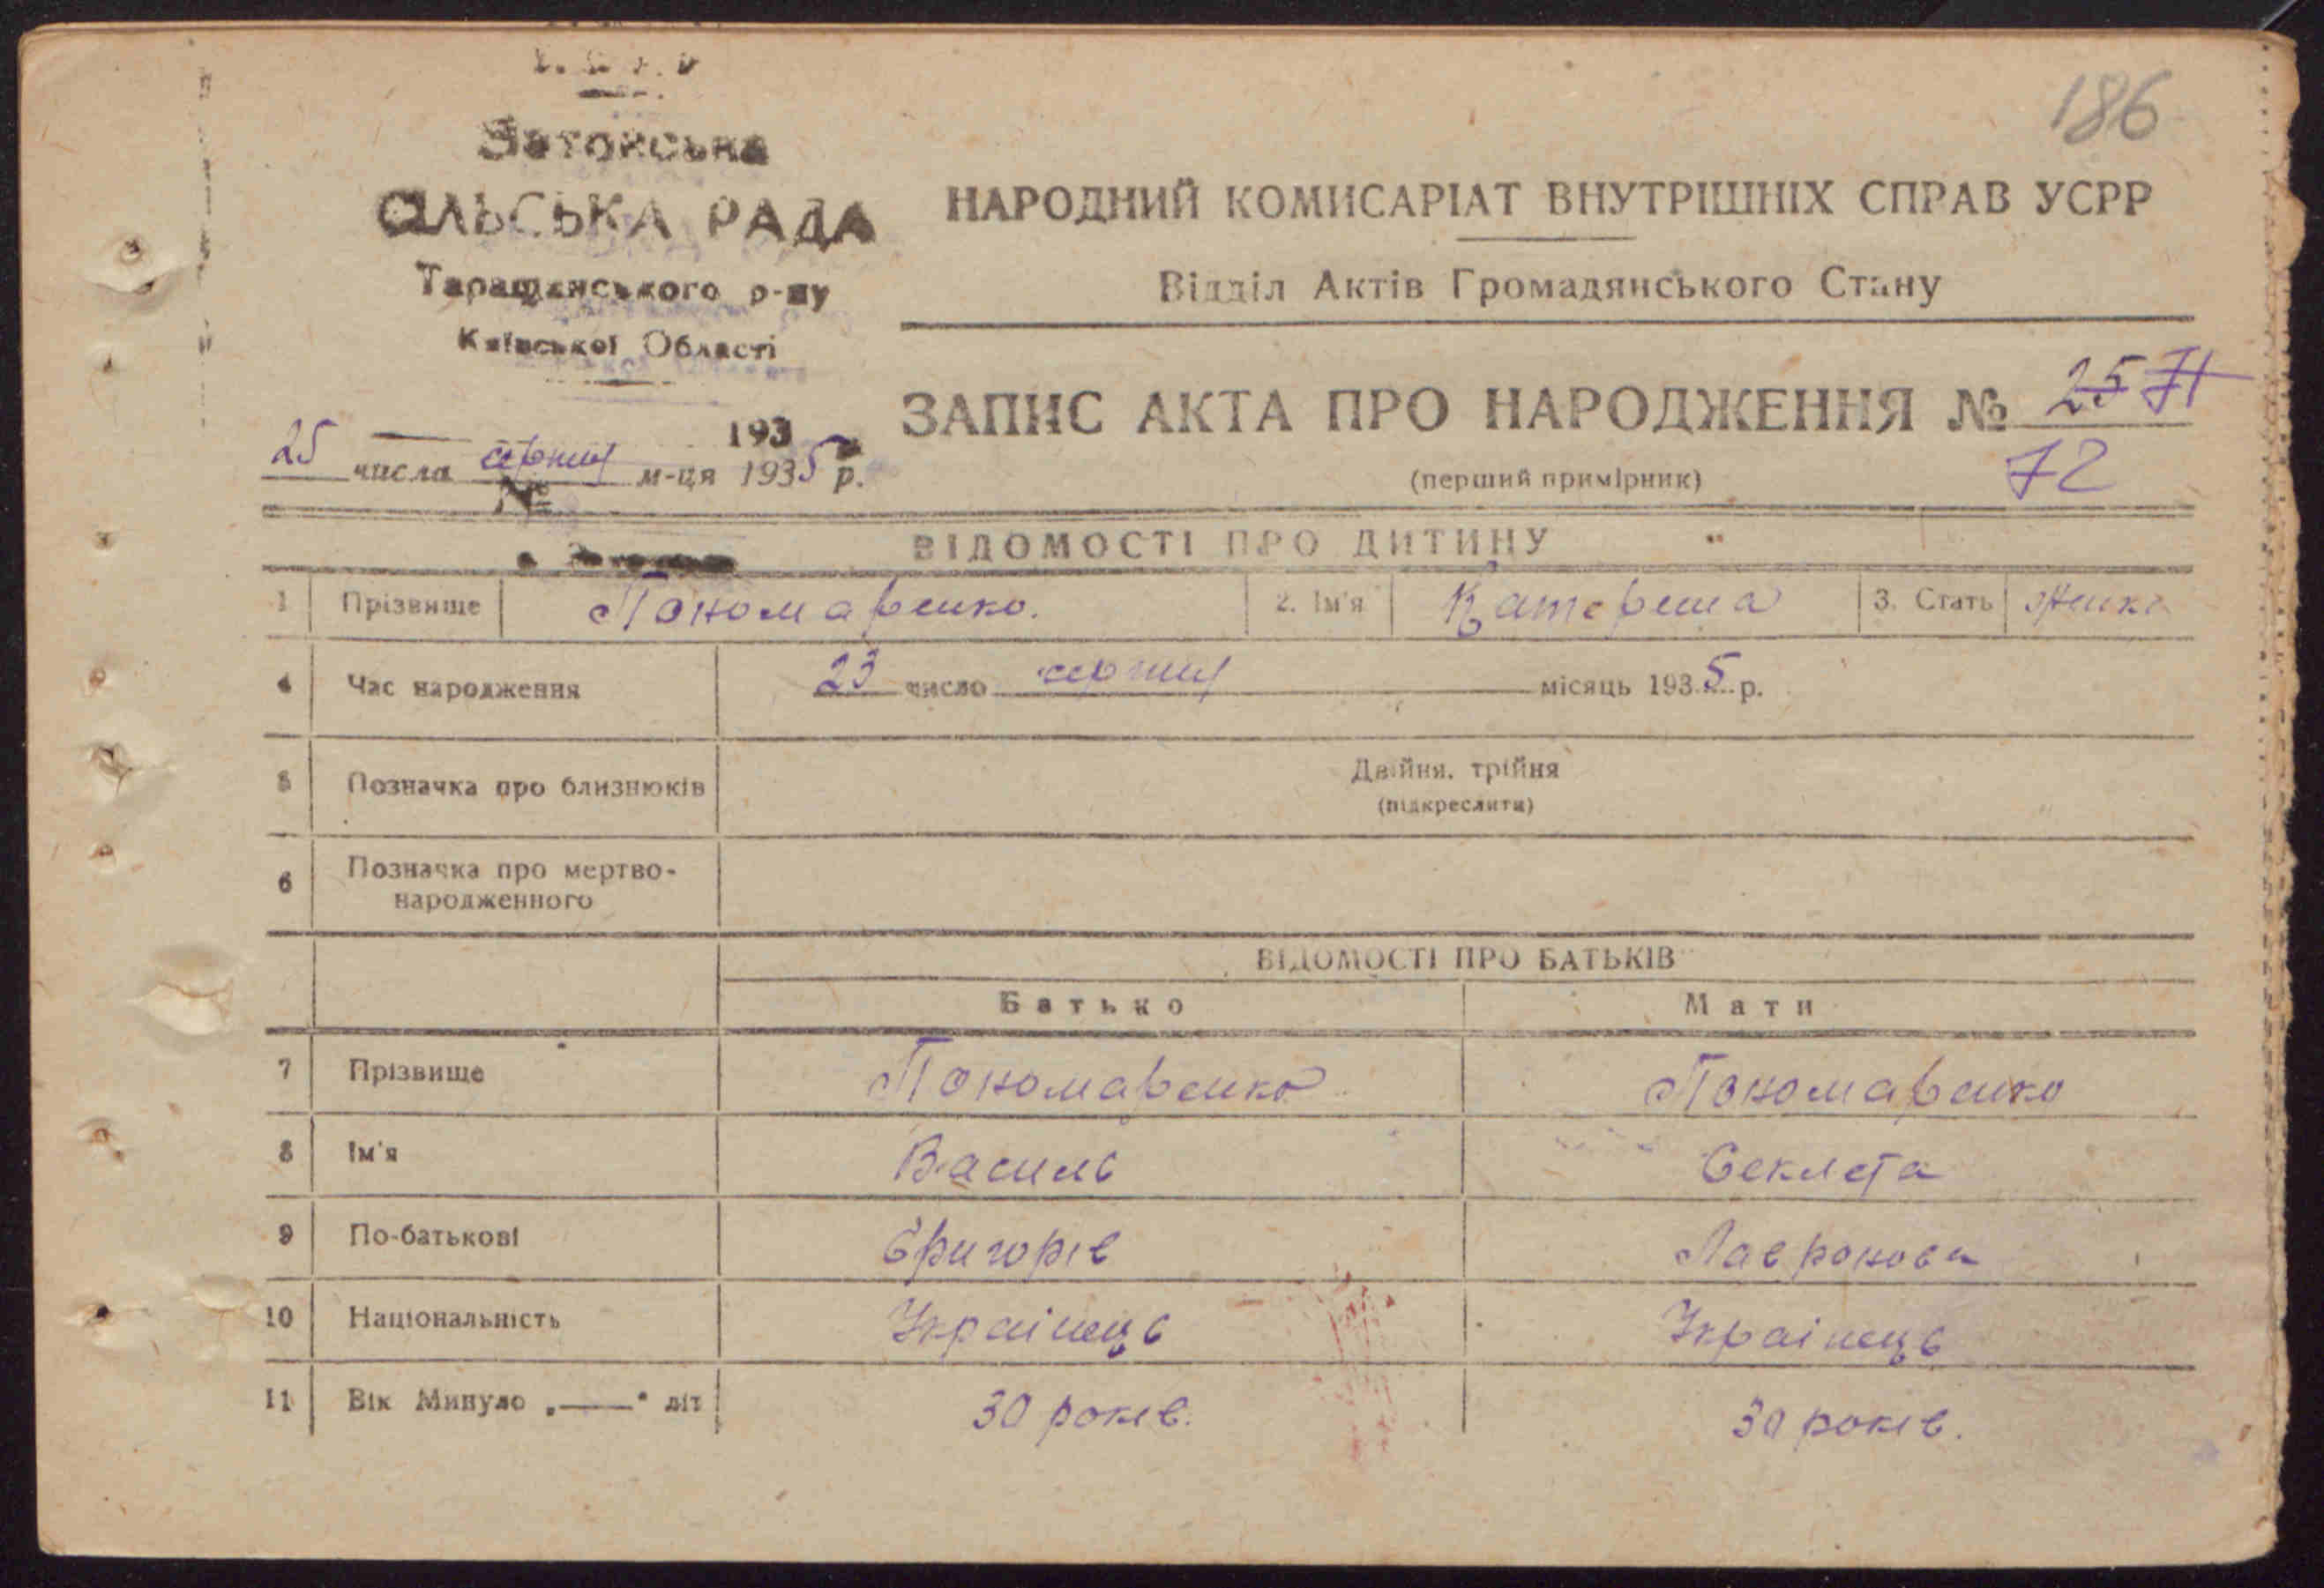 186
СІЛЬСЬКА РАДА
Таращанського р-ну
Київської Області
193
№
НАРОДНИЙ КОМИСАРІАТ ВНУТРІШНІХ СПРАВ УСРР
Відділ Актів Громадянського Стану
ЗАПИС АКТА ПРО НАРОДЖЕННЯ № 25 71
72
(перший примірник)
25 числа серпня м-ця 1935 р.
ВІДОМОСТІ ПРО ДИТИНУ
1 Прізвище Пономаренко. 2. Ім'я Катерина 3. Стать
4 Час народження 23 число серпня місяць 1935 р.
5 Позначка про близнюків Двійня, трійня
(підкреслити)
6 Позначка про мертво-
народженного
ВІДОМОСТІ ПРО БАТЬКІВ
Батько Мати
7 Прізвище Пономаренко Пономаренко
8 Ім'я Василь Секлета
9 По-батькові Григорів
10 Національність Українець Українець
11 Вік Минуло „—“ літ 30 років. 30 років.